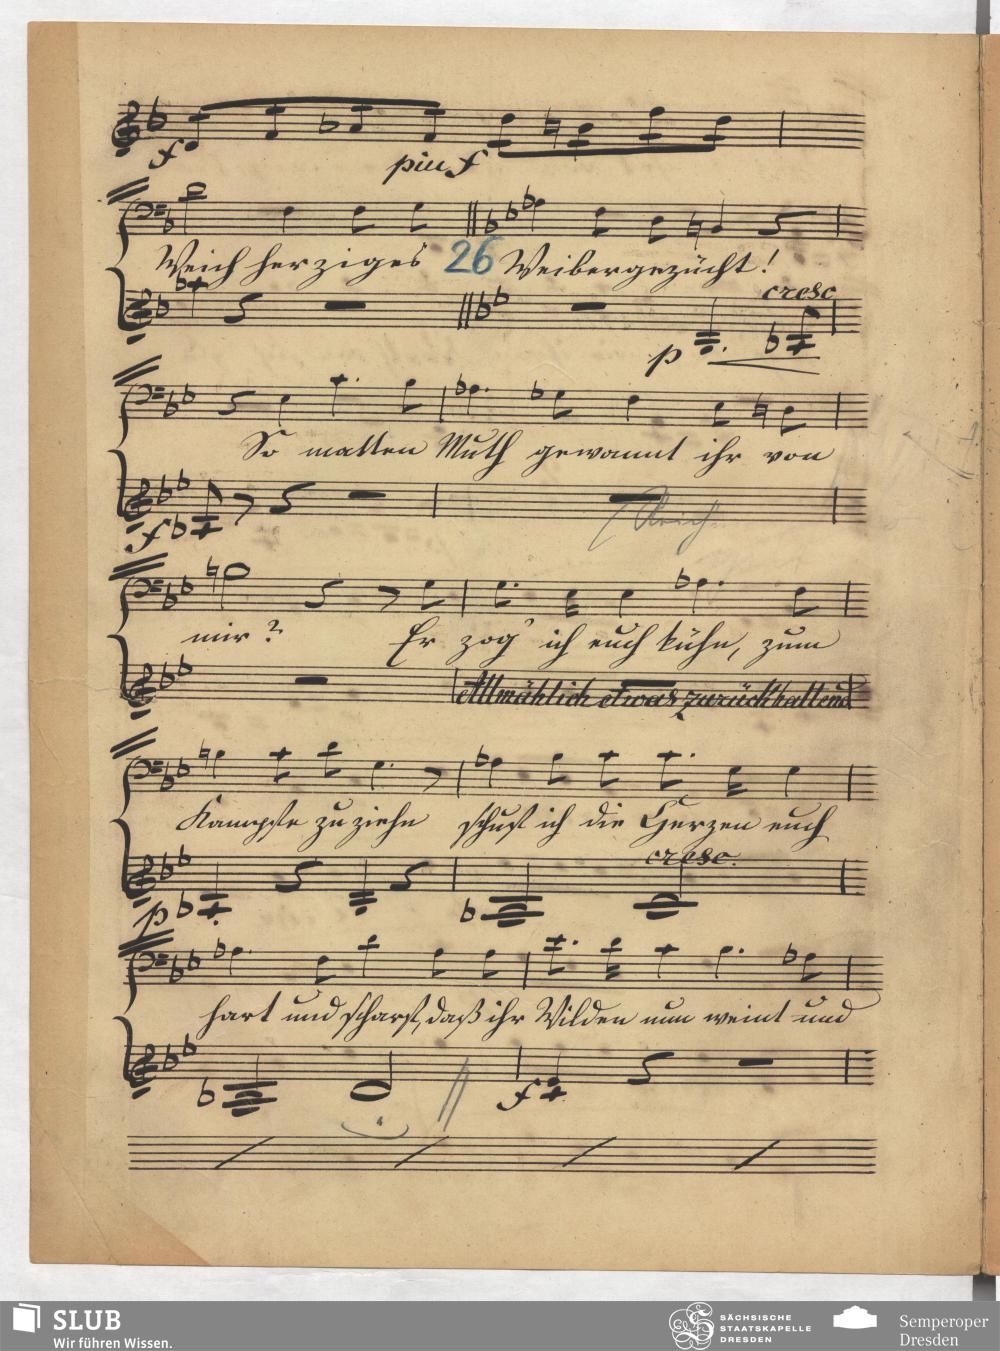 f più f
Weich herziges 26 Weibergezücht!
cresc
p
So matten Muth gewannt ihr von
f
mir? Er zog' ich euch kühn, zum
Allmählich etwas zurückhaltend
Kampfe zu ziehn schuf ich die Herzen euch
cresc.
p
hart und scharf, daß ihr Wilden nun weint und
f
SLUB
Wir führen Wissen.
SÄCHSISCHE
STAATSKAPELLE
DRESDEN
Semperoper
Dresden